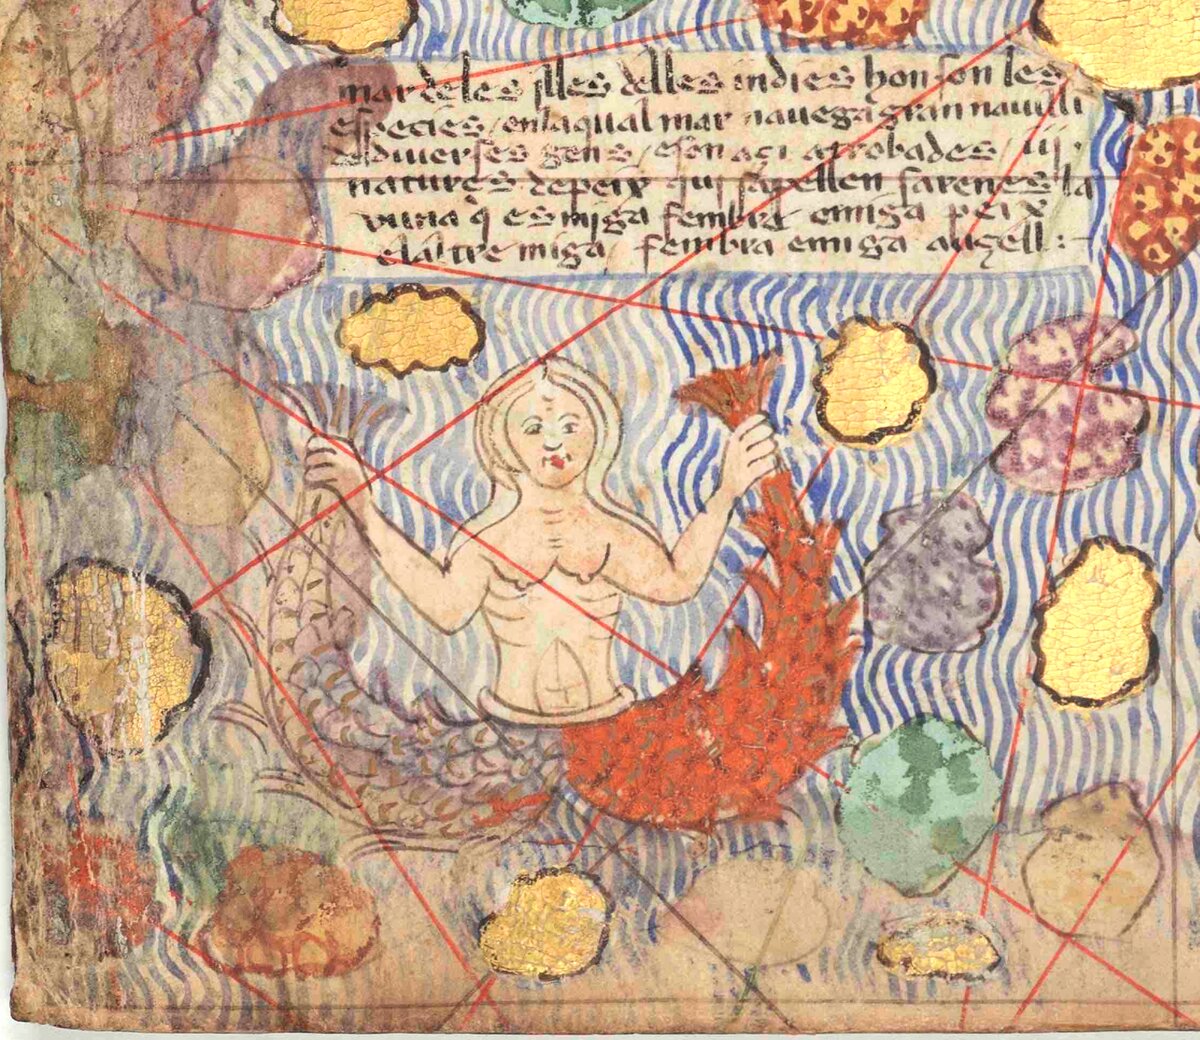 mar deles jlles delles indies hon son les
especies / enlaqual mar navega gran navili
de diverses gens / eson açi atrobades / iij.
natures depeix qui sapellen sarenes la
vuna q̓ es miga fembra emiga peix
elaltre miga fembra emiga auçell :-